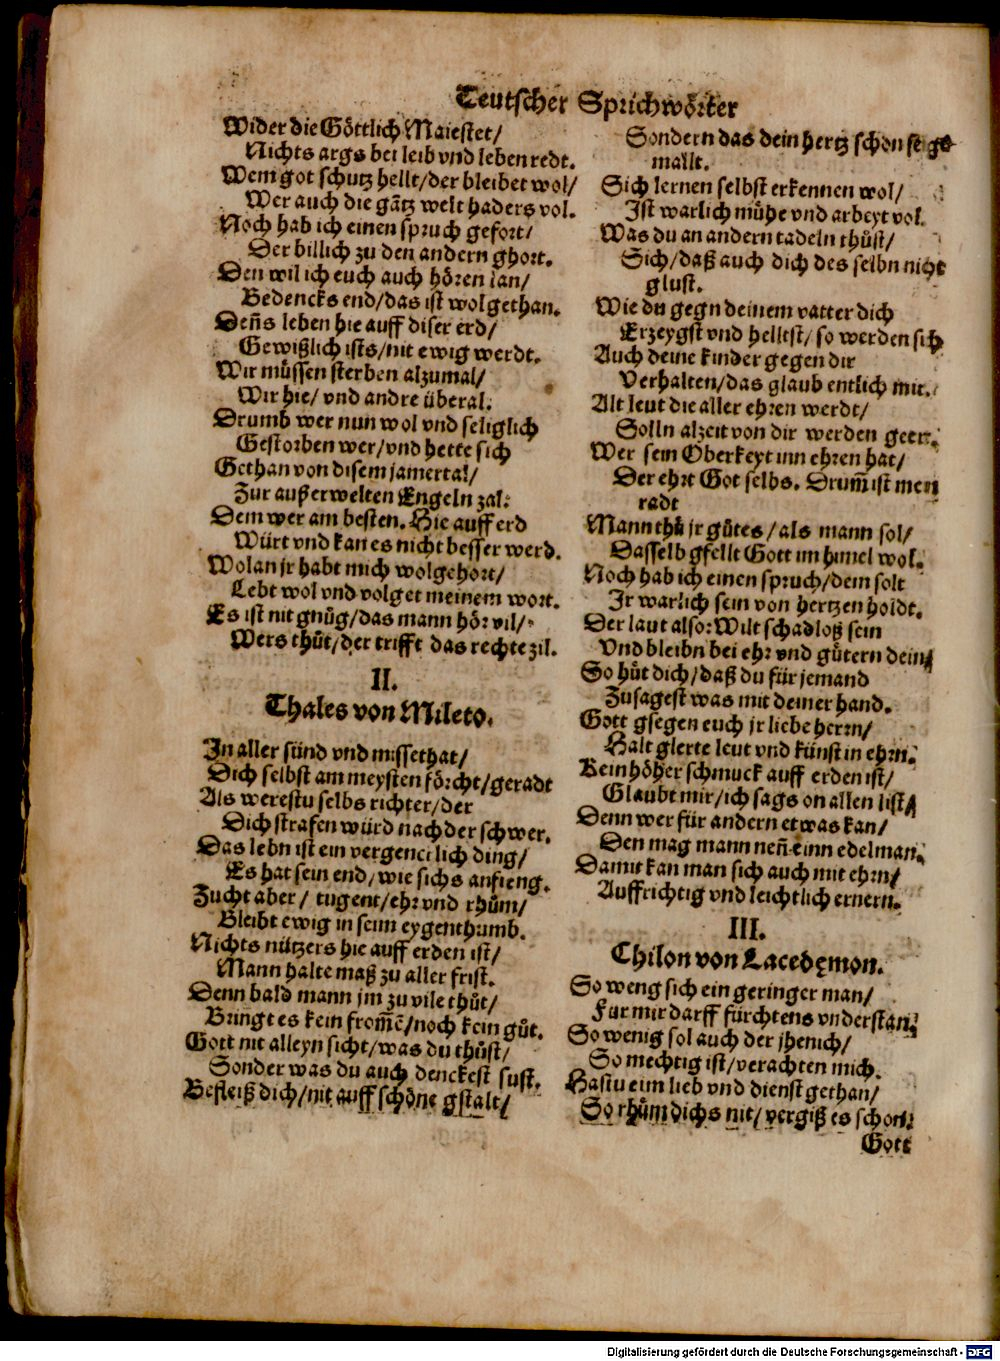 Teutscher Sprichwörter
Wider die Göttlich Maiestet/
Nichts args bei leib vnd leben redt.
Wem got schutz hellt/der bleibet wol/
Wer auch die gãtz welt haders vol.
Noch hab ich einen spruch gefort/
Der billich zu den andern ghort.
Den wil ich euch auch hören lan/
Bedencks end/das ist wolgethan.
Deñs leben hie auff diser erd/
Gewißlich ists/nit ewig werdt.
Wir müssen sterben alzumal/
Wir hie/ vnd andre überal.
Drumb wer nun wol vnd seliglich
Gestorben wer/vnd hette sich
Gethan von disem jamertal/
Zur außerwelten Engeln zal.
Dem wer am besten. Hie auff erd
Würt vnd kan es nicht besser werd.
Wolan jr habt mich wolgehort/
Lebt wol vnd volget meinem wort.
Es ist nit gnůg/das mann hör vil/
Wers thůt/der trifft das rechte zil.
II.
Thales von Mileto.
In aller sünd vnd missethat/
Dich selbst am meysten förcht/geradt
Als werestu selbs richter/der
Dich strafen würd nach der schwer.
Das lebn ist ein vergencklich ding/
Es hat sein end/wie sichs anfieng.
Zucht aber/ tugent/ehr vnd rhům/
Bleibt ewig in seim eygenthumb.
Nichts nützers hie auff erden ist/
Mann halte maß zu aller frist.
Denn bald mann jm zu vile thůt/
Bringt es kein from̃ẽ/noch kein gůt.
Gott nit alleyn sicht/was du thůst/
Sonder was du auch denckest sust.
Befleiß dich/nit auff schöne gstalt/
Sondern das dein hertz schon sei ge
mallt.
Sich lernen selbst erkennen wol/
Ist warlich mühe vnd arbeyt vol.
Was du an andern tadeln thůst/
Sich/daß auch dich des selbn nicht
glust.
Wie du gegn deinem vatter dich
Erzeygst vnd helltst/ so werden sich
Auch deine kinder gegen dir
Verhalten/das glaub entlich mir.
Alt leut die aller ehren werdt/
Solln alzeit von dir werden geert.
Wer sein Oberkeyt inn ehren hat/
Der ehrt Got selbs. Drum̃ ist mein
radt
Mann thů jr gůtes/als mann sol/
Dasselb gfellt Gott im himel wol.
Noch hab ich einen spruch/dem solt
Ir warlich sein von hertzen holdt.
Der laut also: Wilt schadloß sein
Vnd bleibn bei ehr vnd gůtern dein/
So hůt dich/daß du für jemand
Zusagest was mit deiner hand.
Gott gsegen euch jr liebe herrn/
Halt glerte leut vnd künst in ehrn.
Kein höher schmuck auff erden ist/
Glaubt mir/ich sags on allen list/
Denn wer für andern etwas kan/
Den mag mann neñ einn edelman.
Damit kan man sich auch mit ehrn/
Auffrichtig vnd leichtlich ernern.
III.
Chilon von Lacedęmon.
So weng sich ein geringer man/
Fur mir darff fürchtens vnderstan.
So wenig sol auch der jhenich/
So mechtig ist/verachten mich.
Hastu eim lieb vnd dienst gethan/
So rhům dichs nit/vergiß es schon.
Gott
Digitalisierung gefördert durch die Deutsche Forschungsgemeinschaft - DFG